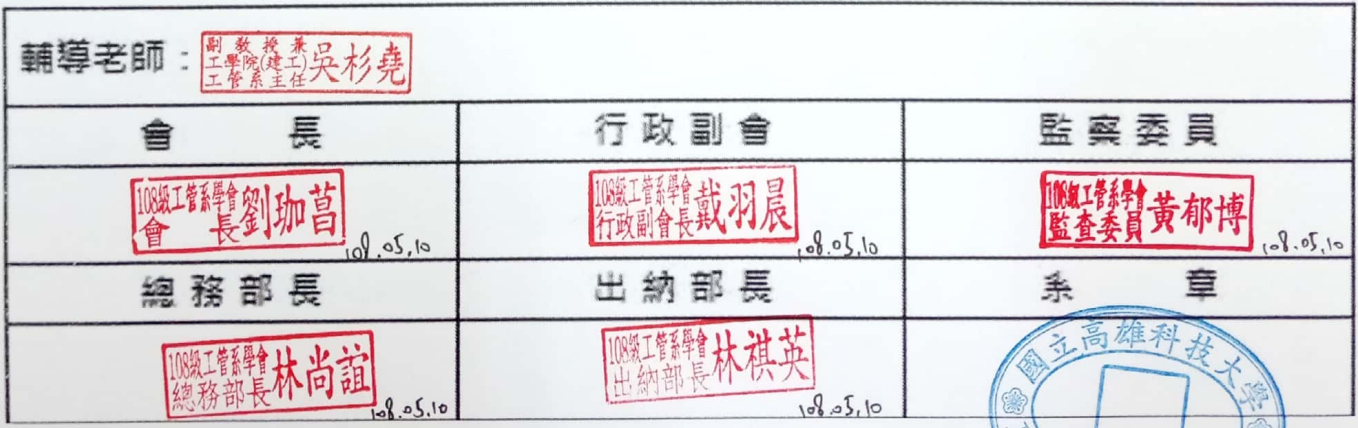 輔導老師：
副教授兼
工學院(建工)
工管系主任
吳杉堯
會長 行政副會 監察委員
108級工管系學會
會長
劉珈菖
108.05.10
108級工管系學會
行政副會長
戴羽晨
108.05.10
108級工管系學會
監查委員
黃郁博
108.05.10
總務部長 出納部長 系章
108級工管系學會
總務部長
林尚誼
108.05.10
108級工管系學會
出納部長
林祺英
108.05.10
國立高雄科技大學